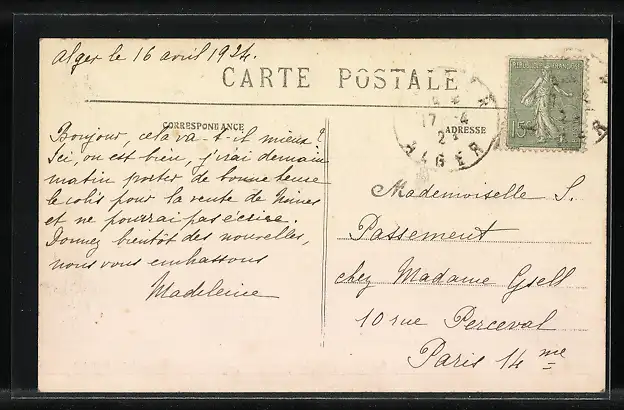 Alger le 16 avril 1924.
CARTE POSTALE
CORRESPONDANCE
ADRESSE
Bonjour, cela va-t-il mieux ?
Ici, on est bien, j'irai demain
matin porter de bonne heure
le colis pour la vente de Nimes
et ne pourrai pas écrire.
Donnez bientôt des nouvelles,
nous vous embrassons
Madeleine
17 - 4
ALGER
15
Mademoiselle S.
Passement
chez Madame Gsell
10 rue Perceval
Paris 14 me